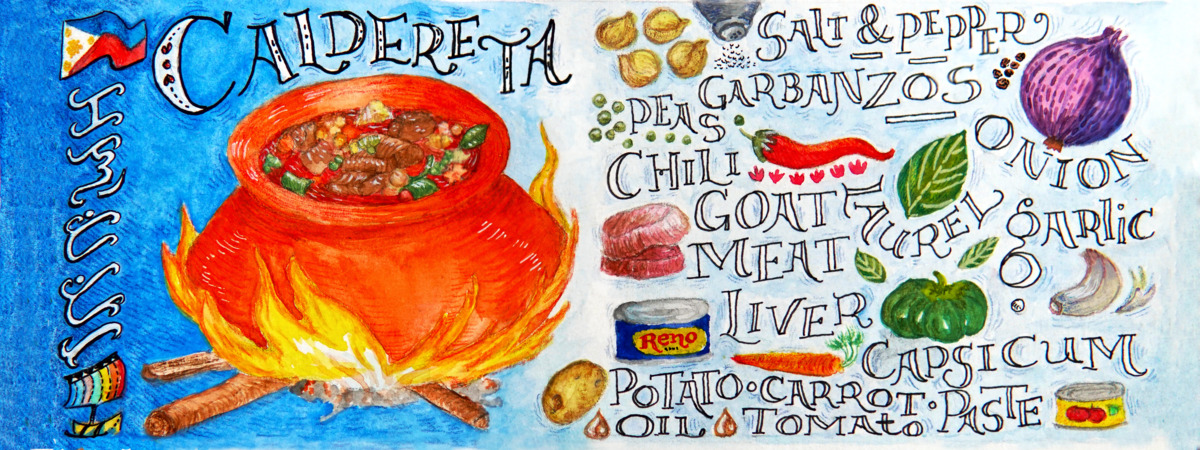 CALDERETA
SALT & PEPPER
GARBANZOS
PEAS
ONION
CHILI
GOAT
MEAT
LAUREL
gARliC
LIVER
Reno
CAPSICUM
POTATO • CARROT •
OIL TOMATO PASTE